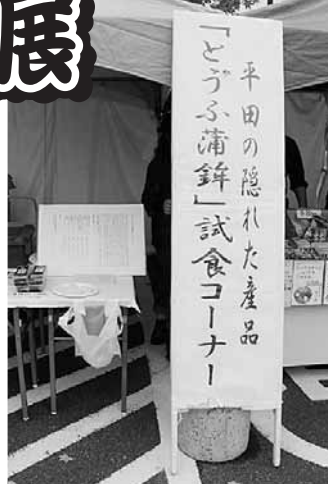 展
平田の隠れた産品
「とうふ蒲鉾」試食コーナー